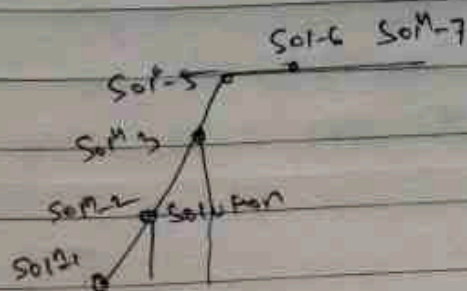 Sol-6 Solⁿ-7
Solⁿ-5
Solⁿ 3
Solⁿ-2 Solution
Solⁿ1